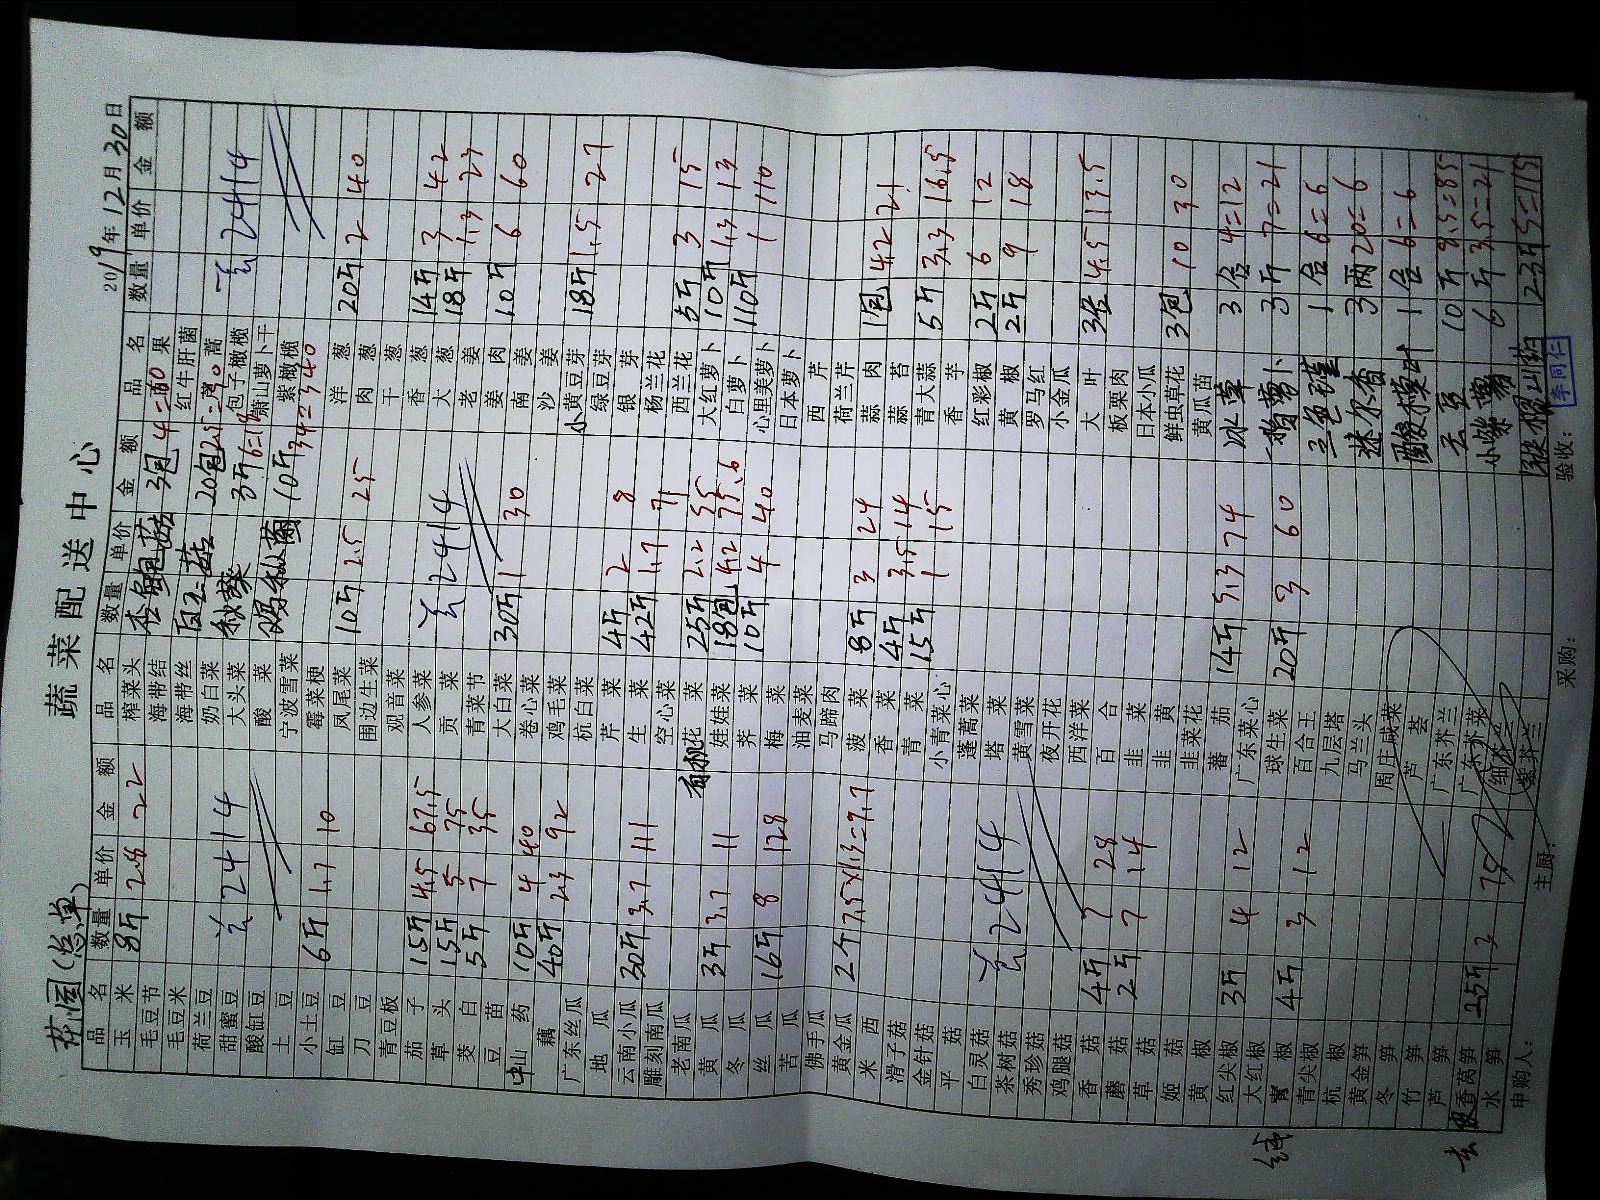 花园(总单)
蔬菜配送中心
2019年12月30日
品名 数量 单价 金额 品名 数量 单价 金额 品名 数量 单价 金额
玉米 8斤 2.8 22
毛豆节
毛豆米
荷兰豆
甜蜜豆
酸缸豆
土豆
小土豆
缸豆 6斤 1.7 10
刀豆
青豆板
茄子 15斤 4.5 67.5
草头 15斤 5 75
茭白 5斤 7 35
豆苗
中山药 10斤 4 40
藕 40斤 2.3 92
广东丝瓜
地瓜
云南小瓜 30斤 3.7 111
雕刻南瓜
老南瓜
黄瓜 3斤 3.7 11
冬瓜
丝瓜 16斤 8 128
苦瓜
佛手瓜
黄金瓜 2个 7.5×1.3=9.7
米西
滑子菇
金针菇
平菇
白灵菇
茶树菇
秀珍菇
鸡腿菇
香菇 4斤 7 28
蘑菇 2斤 7 14
草菇
姬菇
黄椒
红尖椒 3斤 4 12
大红椒
椒 4斤 3 12
青尖椒
杭椒
黄金笋
冬笋
竹笋
芦笋
香莴笋 25斤 3 75
水笋
2414
2414
榨菜头
海带结
海带丝
奶白菜
大头菜
酸菜
宁波雪菜
霉菜梗
凤尾菜 10斤 2.5 25
围边生菜
观音菜
人参菜
贡菜
青菜节
大白菜 30斤 1 30
卷心菜
鸡毛菜
杭白菜
芹菜 4斤 2 8
生菜 42斤 1.7 71
空心菜
有机花菜 25斤 2.2 55
娃娃菜 18包 4.2 75.6
荠菜 10斤 4 40
梅菜
油麦菜
马蹄肉
菠菜 8斤 3 24
香菜 4斤 3.5 14
青菜 15斤 1 15
小青菜心
蓬蒿菜
塔菜
黄雪菜
夜开花
西洋菜
百合
韭菜
韭黄
韭菜花
蕃茄 14斤 5.3 74
广东菜心
球生菜 20斤 3 60
百合王
九层塔
马兰头
周庄咸菜
芦荟
广东芥兰
广东芥菜
细芥兰
紫芥兰
2414
杏鲍菇 3包
白玉菇 20包
秋葵 3斤
鸡枞菌 10斤 34=340
果
红牛肝菌
蒿
包子橄榄
萧山萝卜干
紫橄榄
2414
洋葱 20斤 2 40
肉葱
干葱
香葱 14斤 3 42
大葱 18斤 1.3 23
老姜
姜肉 10斤 6 60
南姜
沙姜
小黄豆芽 18斤 1.5 27
绿豆芽
银芽
杨兰花
西兰花 5斤 3 15
大红萝卜 10斤 1.3 13
白萝卜 110斤 1 110
心里美萝卜
日本萝卜
西芹
荷兰芹
蒜肉 1包 4.2 21
蒜苔
青大蒜 5斤 3.3 16.5
香芋
红彩椒 2斤 6 12
黄椒 2斤 9 18
罗马红
小金瓜
大叶 3 4.5 13.5
板栗肉
日本小瓜
鲜虫草花 3包 10 30
黄瓜苗
冰草 3合 4=12
指萝卜 3斤 7=21
三色堇 1合 6=6
迷尔香 3两 20=6
酸模叶 1合 6=6
10斤 8.5=85
小 薯 6斤 3.5=21
铁棍山药 23斤 5=115
申购人:
主厨:
采购:
验收:
李同仁